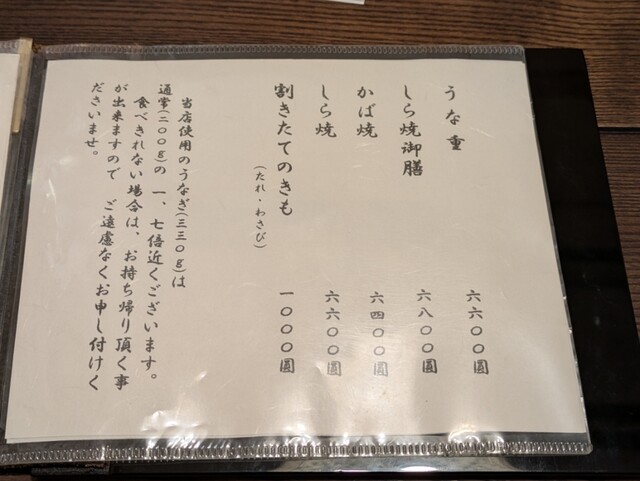 うな重 六六〇〇圓
しら焼御膳 六八〇〇圓
かば焼 六四〇〇圓
しら焼 六六〇〇圓
割きたてのきも 一〇〇〇圓
(たれ・わさび)
当店使用のうなぎ(三三〇g)は
通常(二〇〇g)の一、七倍近くございます。
食べきれない場合は、お持ち帰り頂く事
が出来ますので ご遠慮なくお申し付けく
ださいませ。